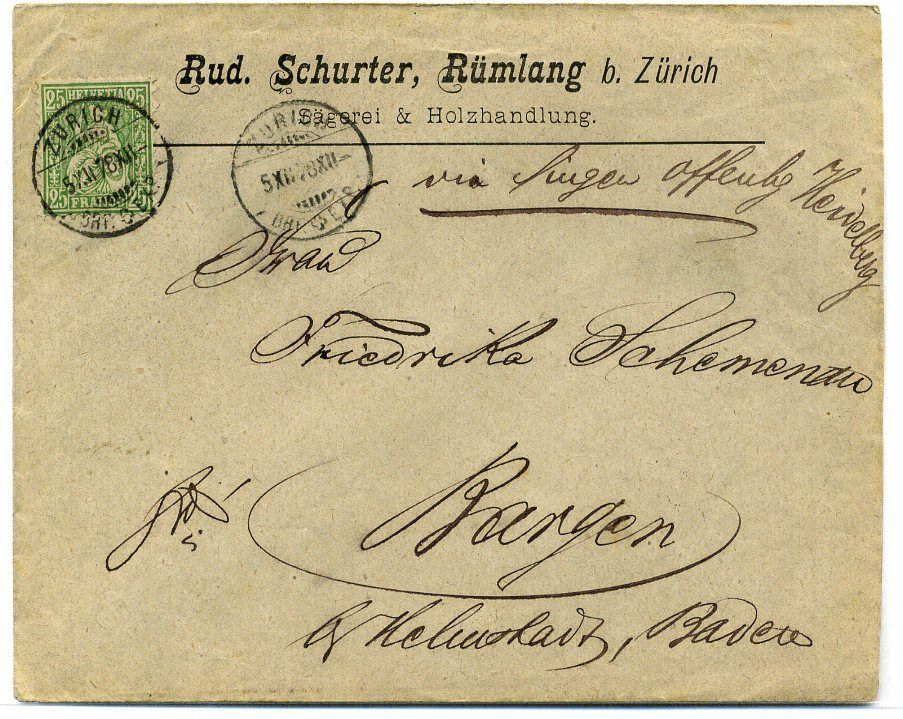 Rud. Schurter, Rümlang b. Zürich
Sägerei & Holzhandlung.
25 HELVETIA 25
25 FRANCO 25
ZÜRICH
5 XII 78 XII
BRF. EXP.
ZÜRICH
5 XII 78 XII
via Singen Offenbg Heidelberg
Frau
Friedrika Schemenau
Bargen
by Helmstadt, Baden